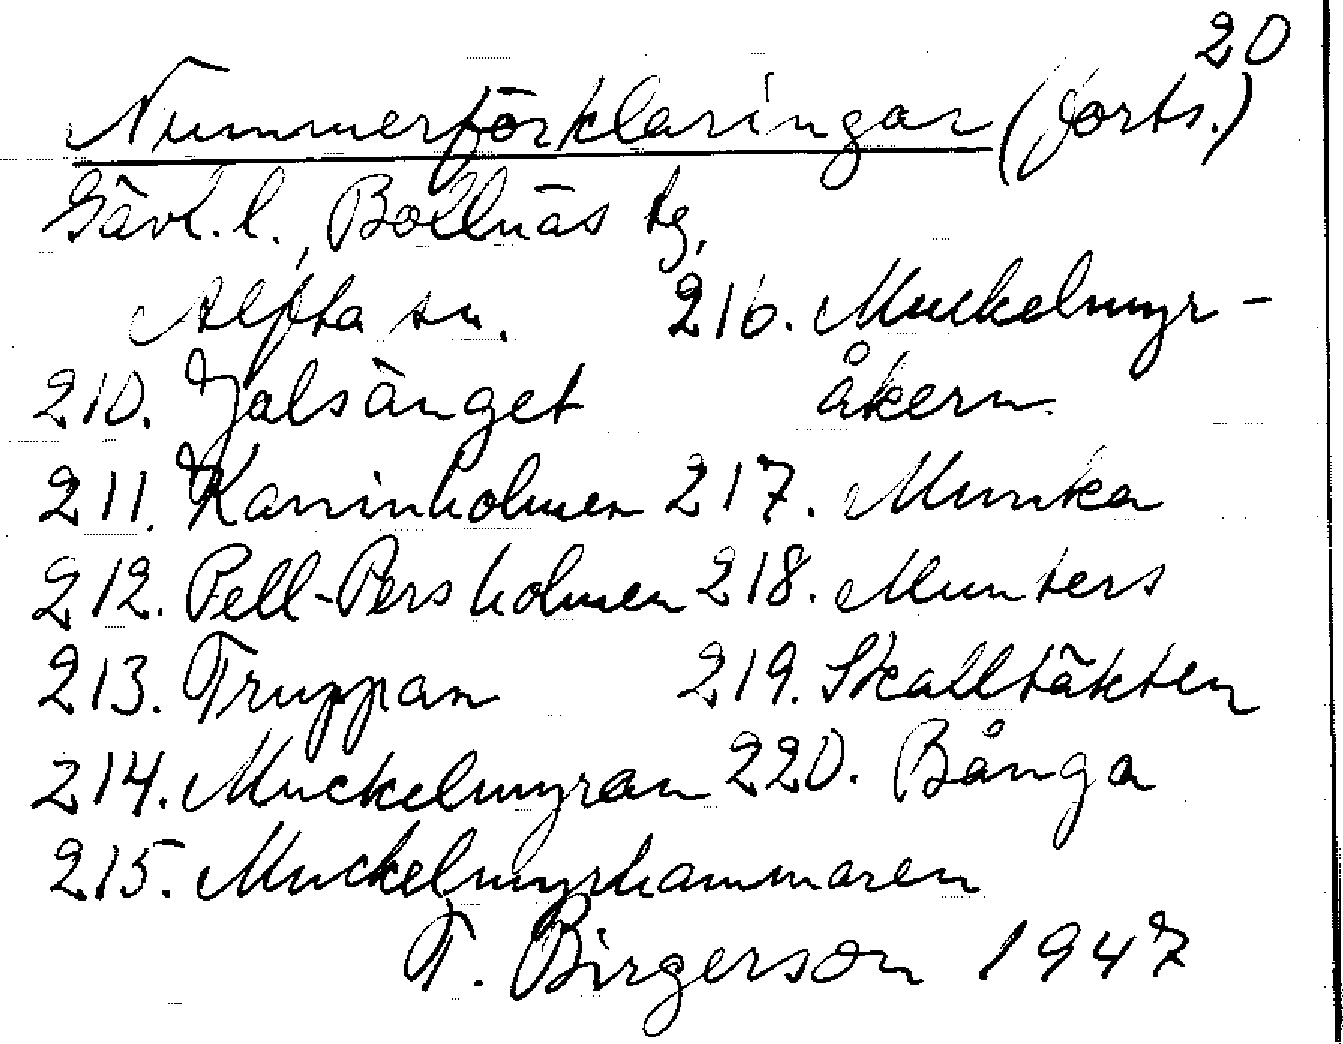 20
Nummerförklaringar (forts.)
Gävl. l., Bollnäs tg,
Alfta sn.
210. Jalsänget
211. Kaninholmen
212. Pell-Pers holmen
213. Truppan
214. Muckelmyran
215. Muckelmyrhammaren
216. Muckelmyr-
åkern
217. Munka
218. Munters
219. Skalltäkten
220. Bånga
T. Birgerson 1947